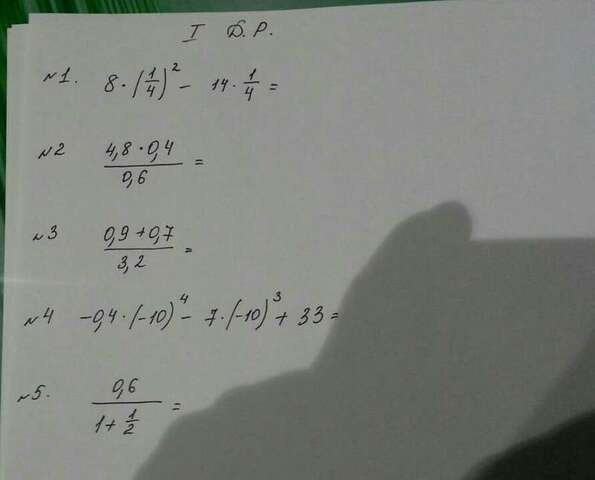 I Д.Р.
№1. 8 · (1/4)² - 14 · 1/4 =
№2 4,8 · 0,4 / 0,6 =
№3 0,9 + 0,7 / 3,2 =
№4 -0,4 · (-10)⁴ - 7 · (-10)³ + 33 =
№5. 0,6 / 1 + 1/2 =